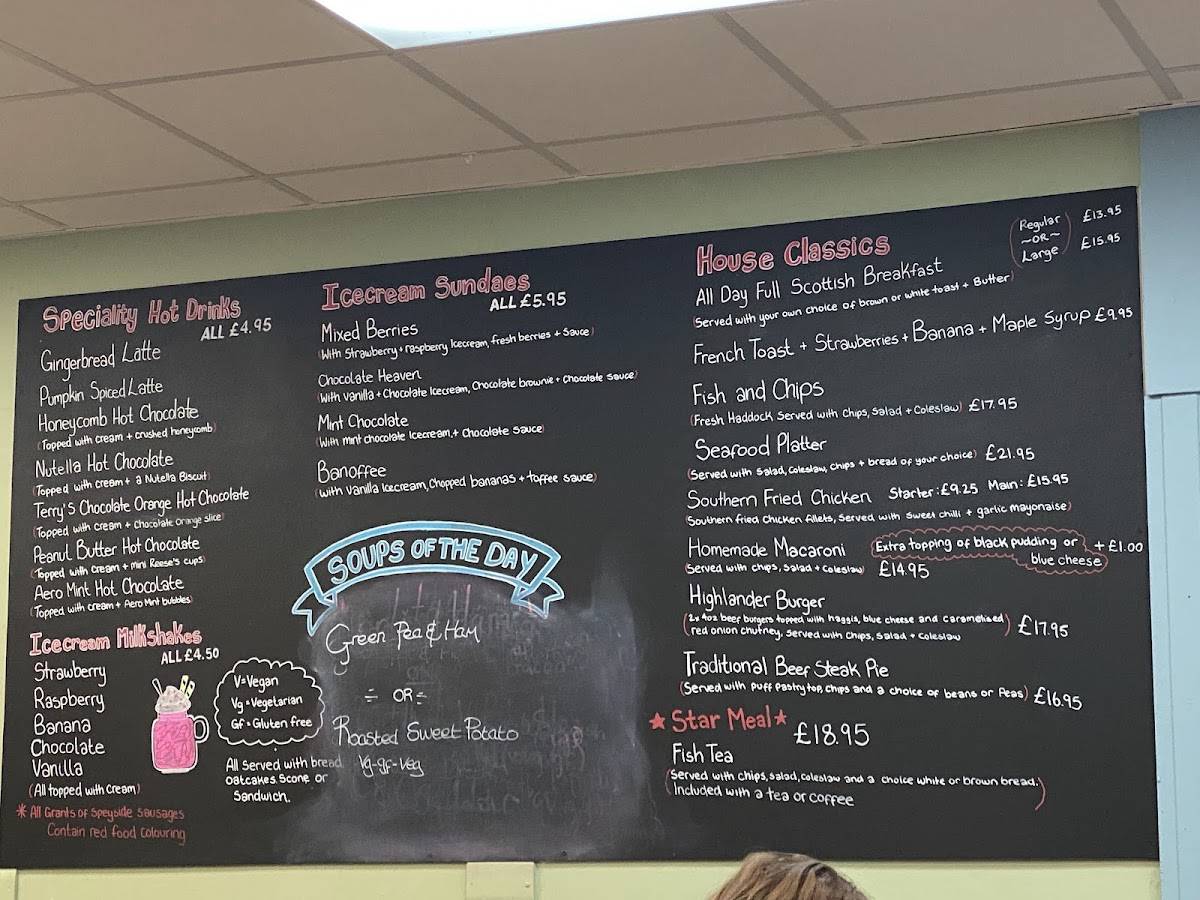 Speciality Hot Drinks
ALL £4.95
Gingerbread Latte
Pumpkin Spiced Latte
Honeycomb Hot Chocolate
(Topped with cream + crushed honeycomb)
Nutella Hot Chocolate
(Topped with cream + a Nutella Biscuit)
Terry's Chocolate Orange Hot Chocolate
(Topped with cream + Chocolate orange slice)
Peanut Butter Hot Chocolate
(Topped with cream + mini Reese's cups)
Aero Mint Hot Chocolate
(Topped with cream + Aero Mint bubbles)
Icecream Milkshakes
ALL £4.50
Strawberry
Raspberry
Banana
Chocolate
Vanilla
(All topped with cream)
* All Grants of Speyside Sausages
Contain red food colouring
V=Vegan
Vg = Vegetarian
Gf = Gluten free
All served with bread
oatcakes. Scone or
Sandwich.
Icecream Sundaes
ALL £5.95
Mixed Berries
(With Strawberry + raspberry Icecream, fresh berries + Sauce)
Chocolate Heaven
(With vanilla + Chocolate Icecream, Chocolate brownie + Chocolate Sauce)
Mint Chocolate
(With mint chocolate Icecream, + Chocolate Sauce)
Banoffee
(with Vanilla Icecream, Chopped bananas + toffee sauce)
SOUPS OF THE DAY
Green Pea & Ham
÷ OR ÷
Roasted Sweet Potato
Vg-gf-Veg
House Classics
Regular £13.95
~OR~
Large £15.95
All Day Full Scottish Breakfast
(Served with your own choice of brown or white toast + Butter)
French Toast + Strawberries + Banana + Maple Syrup £9.95
Fish and Chips
(Fresh Haddock Served with Chips, Salad + Coleslaw) £17.95
Seafood Platter
(Served with Salad, Coleslaw, Chips + bread of your choice) £21.95
Southern Fried Chicken Starter: £9.25 Main: £15.95
(Southern fried Chicken fillets, Served with Sweet chilli + garlic mayonaise)
Homemade Macaroni Extra topping of black pudding or + £1.00
blue cheese
(Served with chips, Salad + Coleslaw) £14.95
Highlander Burger
(2x 4oz beer burgers topped with haggis, blue cheese and caramelised)
red onion chutney, Served with Chips, Salad + Coleslaw £17.95
Traditional Beef Steak Pie
(Served with Puff Pastry top, Chips and a choice of beans or Peas) £16.95
★ Star Meal ★ £18.95
Fish Tea
(Served with chips, salad, coleslaw and a choice white or brown bread.
Included with a tea or coffee)